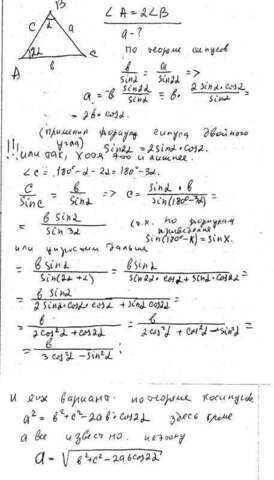 B
∠A = 2∠B
a - ?
c
2
a
A
22
C
в
По теореме синусов
в/sin2 = a/sin22 =>
a = в · sin22/sin2 = в · 2sin2·cos2/sin2 =
= 2в·cos2.
(применил формулу синуса двойного
угла) sin22 = 2sin2·cos2.
!!! или так, хотя это и лишнее.
∠c = 180° - 2 - 22 = 180° - 32.
C/sinC = в/sin2 => C = sin2·в/sin(180°-32) =
= в sin2/sin32 (т.к. по формулам
приведения
sin(180°-x) = sinx.
или упростим дальше
= в sin2/sin(22+2) = в sin2/sin22·cos2+sin2·cos22 =
= в sin2/2sin2·cos2·cos2+sin2cos22 =
= в/2cos²2+cos22 = в/2cos²2+cos²2-sin²2 =
= в/3cos²2-sin²2 ;
И ещё вариант. по теореме косинусов
a² = в²+c²-2aв·cos22 здесь кроме
a все известно. поэтому
a = √в²+c²-2aвcos22